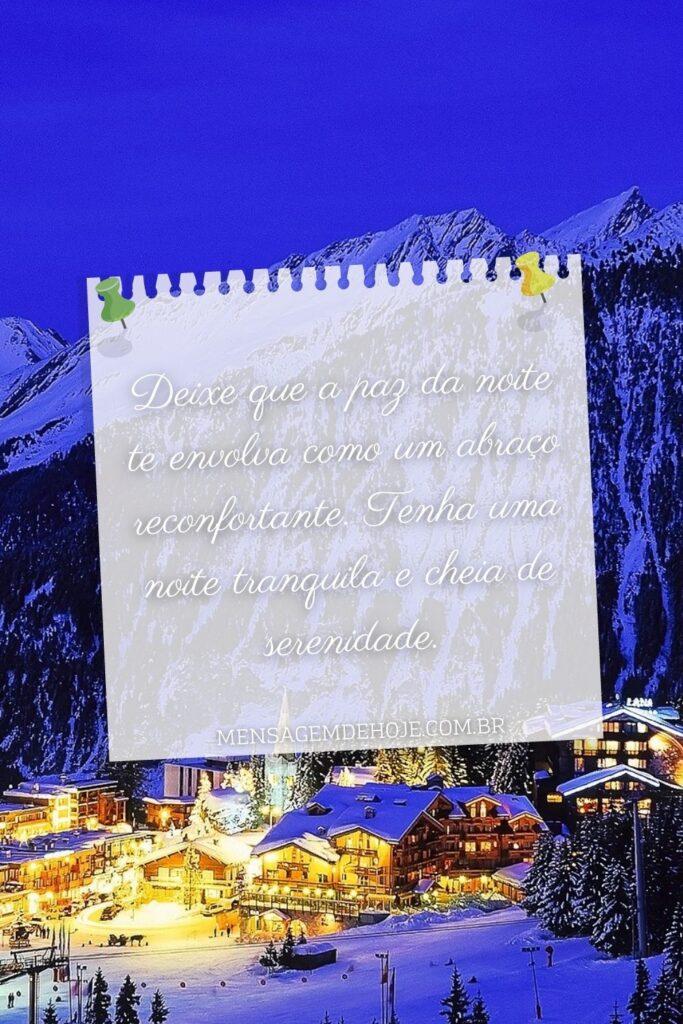 Deixe que a paz da noite
te envolva como um abraço
reconfortante. Tenha uma
noite tranquila e cheia de
serenidade.
MENSAGEMDEHOJE.COM.BR
LANA